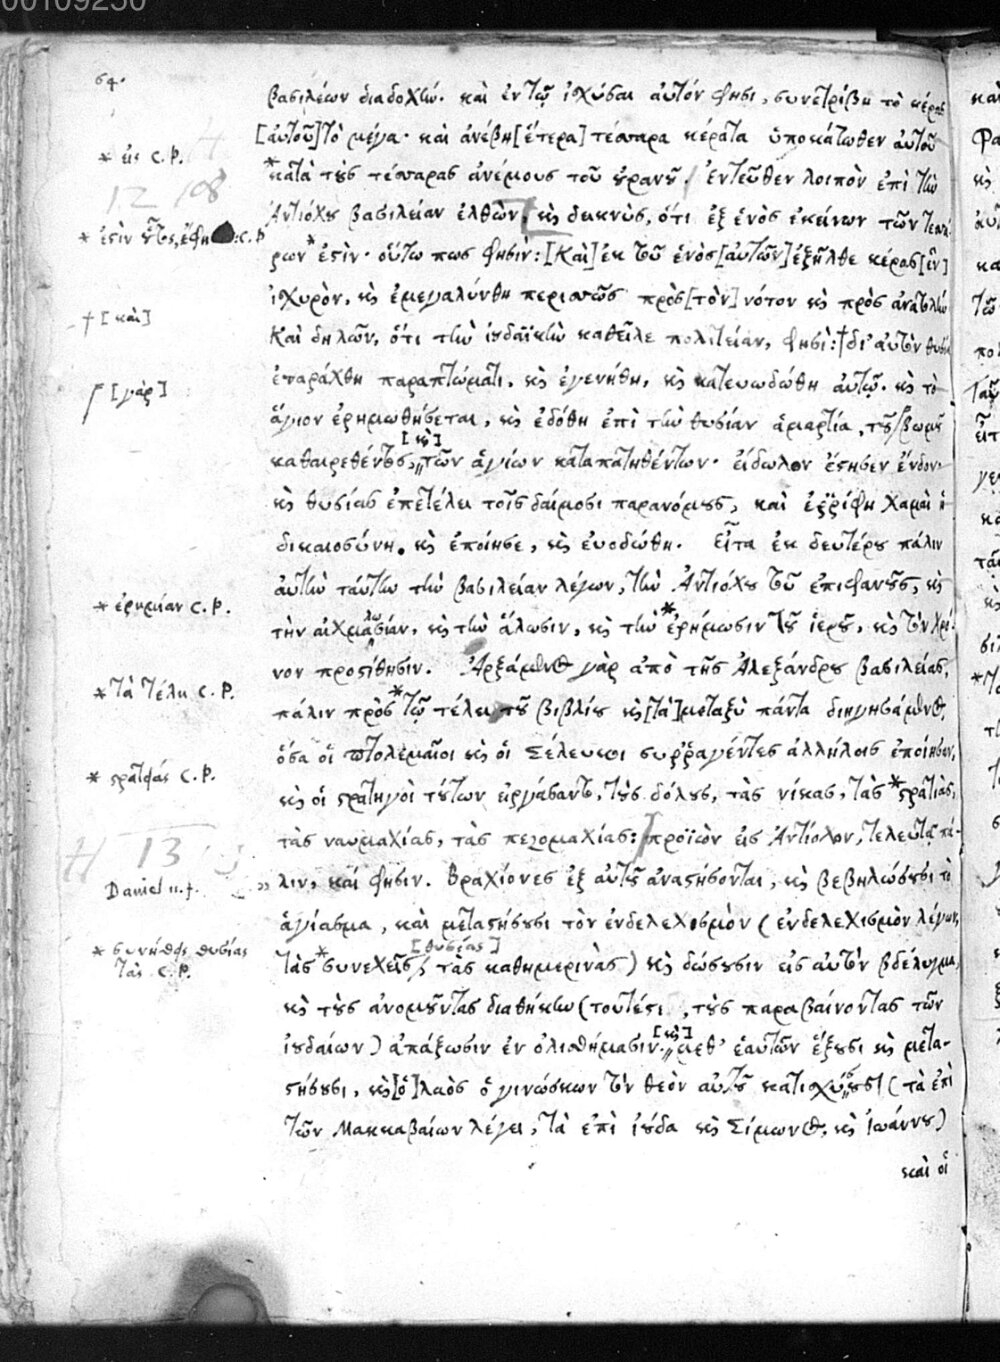 00109250
64.
βασιλέων διαδοχήν. καὶ ἐν τῷ ἰσχύσαι αὐτόν φησι, συνετρίβη τὸ κέρας
[αὐτοῦ] τὸ μέγα· καὶ ἀνέβη [ἕτερα] τέσσαρα κέρατα ὑποκάτωθεν αὐτοῦ
* εἰς C. P.
* κατὰ τοὺς τέσσαρας ἀνέμους τοῦ οὐρανοῦ. ἐντεῦθεν λοιπὸν ἐπὶ τὴν
12
Ἀντιόχου βασιλείαν ἐλθὼν, καὶ δεικνὺς, ὅτι ἐξ ἑνὸς ἐκείνων τῶν τεσσά-
* ἐστὶν οὗτος, ἔφη : C. P
ρων * ἐστὶν· οὕτω πως φησὶν: [Καὶ] ἐκ τοῦ ἑνὸς [αὐτῶν] ἐξῆλθε κέρας [ἓν]
ἰσχυρὸν, καὶ ἐμεγαλύνθη περισσῶς πρὸς [τὸν] νότον καὶ πρὸς ἀνατολήν
† [καὶ]
Καὶ δηλῶν, ὅτι τὴν ἰουδαϊκὴν καθεῖλε πολιτείαν, φησὶ: † δι' αὐτὸν θυσία
ἐταράχθη παραπτώματι, καὶ ἐγενήθη, καὶ κατευωδώθη αὐτῷ. καὶ τὸ
[γὰρ]
ἅγιον ἐρημωθήσεται, καὶ ἐδόθη ἐπὶ τὴν θυσίαν ἁμαρτία, τοῦ βωμοῦ
[καὶ]
καθαιρεθέντος, τῶν ἁγίων καταπατηθέντων. εἴδωλον ἔστησεν ἔνδον·
καὶ θυσίας ἐπετέλει τοῖς δαίμοσι παρανόμους, καὶ ἐῤῥίφη χαμαὶ ἡ
δικαιοσύνη. καὶ ἐποίησε, καὶ εὐοδώθη. Εἶτα ἐκ δευτέρου πάλιν
αὐτὴν ταύτην τὴν βασιλείαν λέγων, τὴν Ἀντιόχου τοῦ ἐπιφανοῦς, καὶ
* ἐρημίαν C. P.
τὴν αἰχμαλωσίαν, καὶ τὴν ἅλωσιν, καὶ τὴν * ἐρήμωσιν τοῦ ἱεροῦ, καὶ τὸν χρό-
νον προστίθησιν. Ἀρξάμενος γὰρ ἀπὸ τῆς Ἀλεξάνδρου βασιλείας,
* τὰ τέλη C. P.
πάλιν πρὸς * τῷ τέλει τοῦ βιβλίου καὶ [τὰ] μεταξὺ πάντα διηγησάμενος,
ὅσα οἱ πτολεμαῖοι καὶ οἱ Σέλευκοι συῤῥαγέντες ἀλλήλοις ἐποίησαν,
* στρατείας C. P.
καὶ οἱ στρατηγοὶ τούτων εἰργάσαντο, τοὺς δόλους, τὰς νίκας, τὰς * στρατιὰς,
τὰς ναυμαχίας, τὰς πεζομαχίας: προϊὼν εἰς Ἀντίοχον, τελευτᾷ πά-
13
Daniel 11. †.
λιν, καί φησιν. Βραχίονες ἐξ αὐτοῦ ἀναστήσονται, καὶ βεβηλώσουσι τὸ
ἁγίασμα, καὶ μεταστήσουσι τὸν ἐνδελεχισμὸν (ἐνδελεχισμὸν λέγων,
* συνήθεις θυσίας
τὰς C. P.
[θυσίας]
τὰς * συνεχεῖς, τὰς καθημερινὰς) καὶ δώσουσιν εἰς αὐτὸν βδέλυγμα,
καὶ τοὺς ἀνομοῦντας διαθήκην (τουτέστι, τοὺς παραβαίνοντας τῶν
[καὶ]
ἰουδαίων) ἀπάξωσιν ἐν ὀλισθήμασιν. μεθ' ἑαυτῶν ἕξουσι καὶ μετα-
στήσουσι, καὶ [ὁ] λαὸς ὁ γινώσκων τὸν θεὸν αὐτοῦ κατισχύσουσι (τὰ ἐπὶ
τῶν Μακκαβαίων λέγει, τὰ ἐπὶ ἰούδα καὶ Σίμωνος, καὶ ἰωάννου)
καὶ οἱ